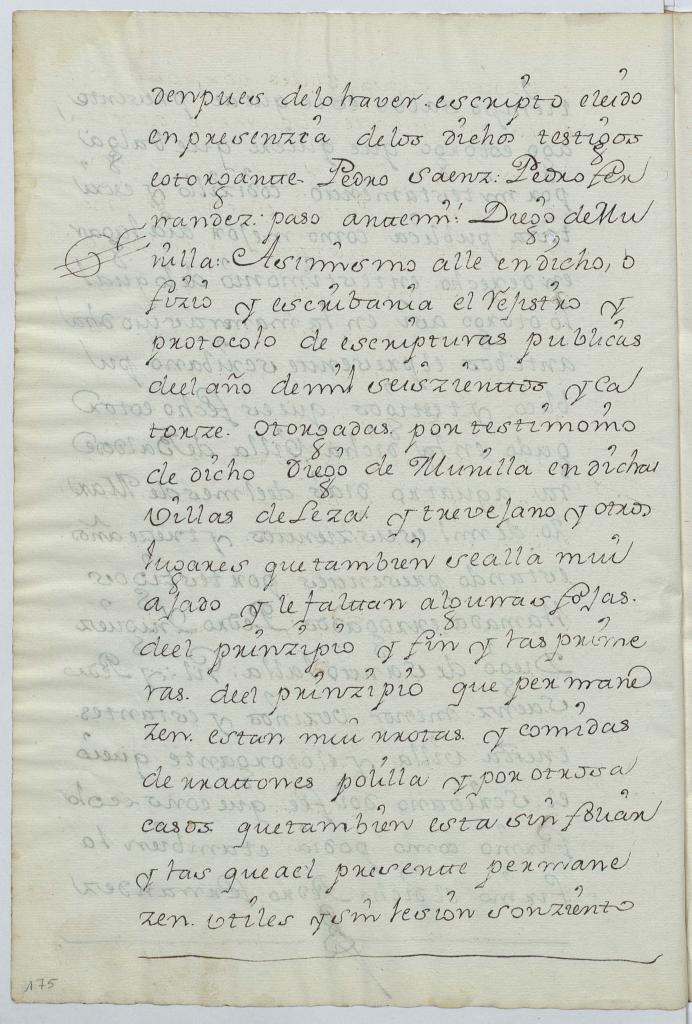 denpues delo haver escripto eleido
en presenzia delos dicho testigos
eotorgantte Pedro Saenz: Pedro fer
nandez: paso antemi: Diego de Mu
nilla: Asimismo alle en dicho, o
fizio y escribania el Rejistro y
protocolo de escripturas publicas
deel año de mil seiszienttos y ca
torze. otorgadas, por testimonio
de dicho Diego de Munilla en dichas
Villas de Leza y trevejano y otros
lugares que tambien se alla mui
ajado y le faltan algunas fojas.
deel prinzipio y fin y las prime
ras. deel prinzipio que permane
zen. estan mui rrotas. y comidas
de rrattones polilla y por otros a
casos que tambien esta sin foliar
y las que ael presentte permane
zen. utiles y sin lesion son ziento
175